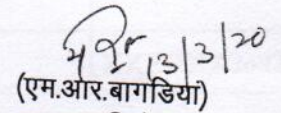 13/3/20
(एम.आर.बागडिया)